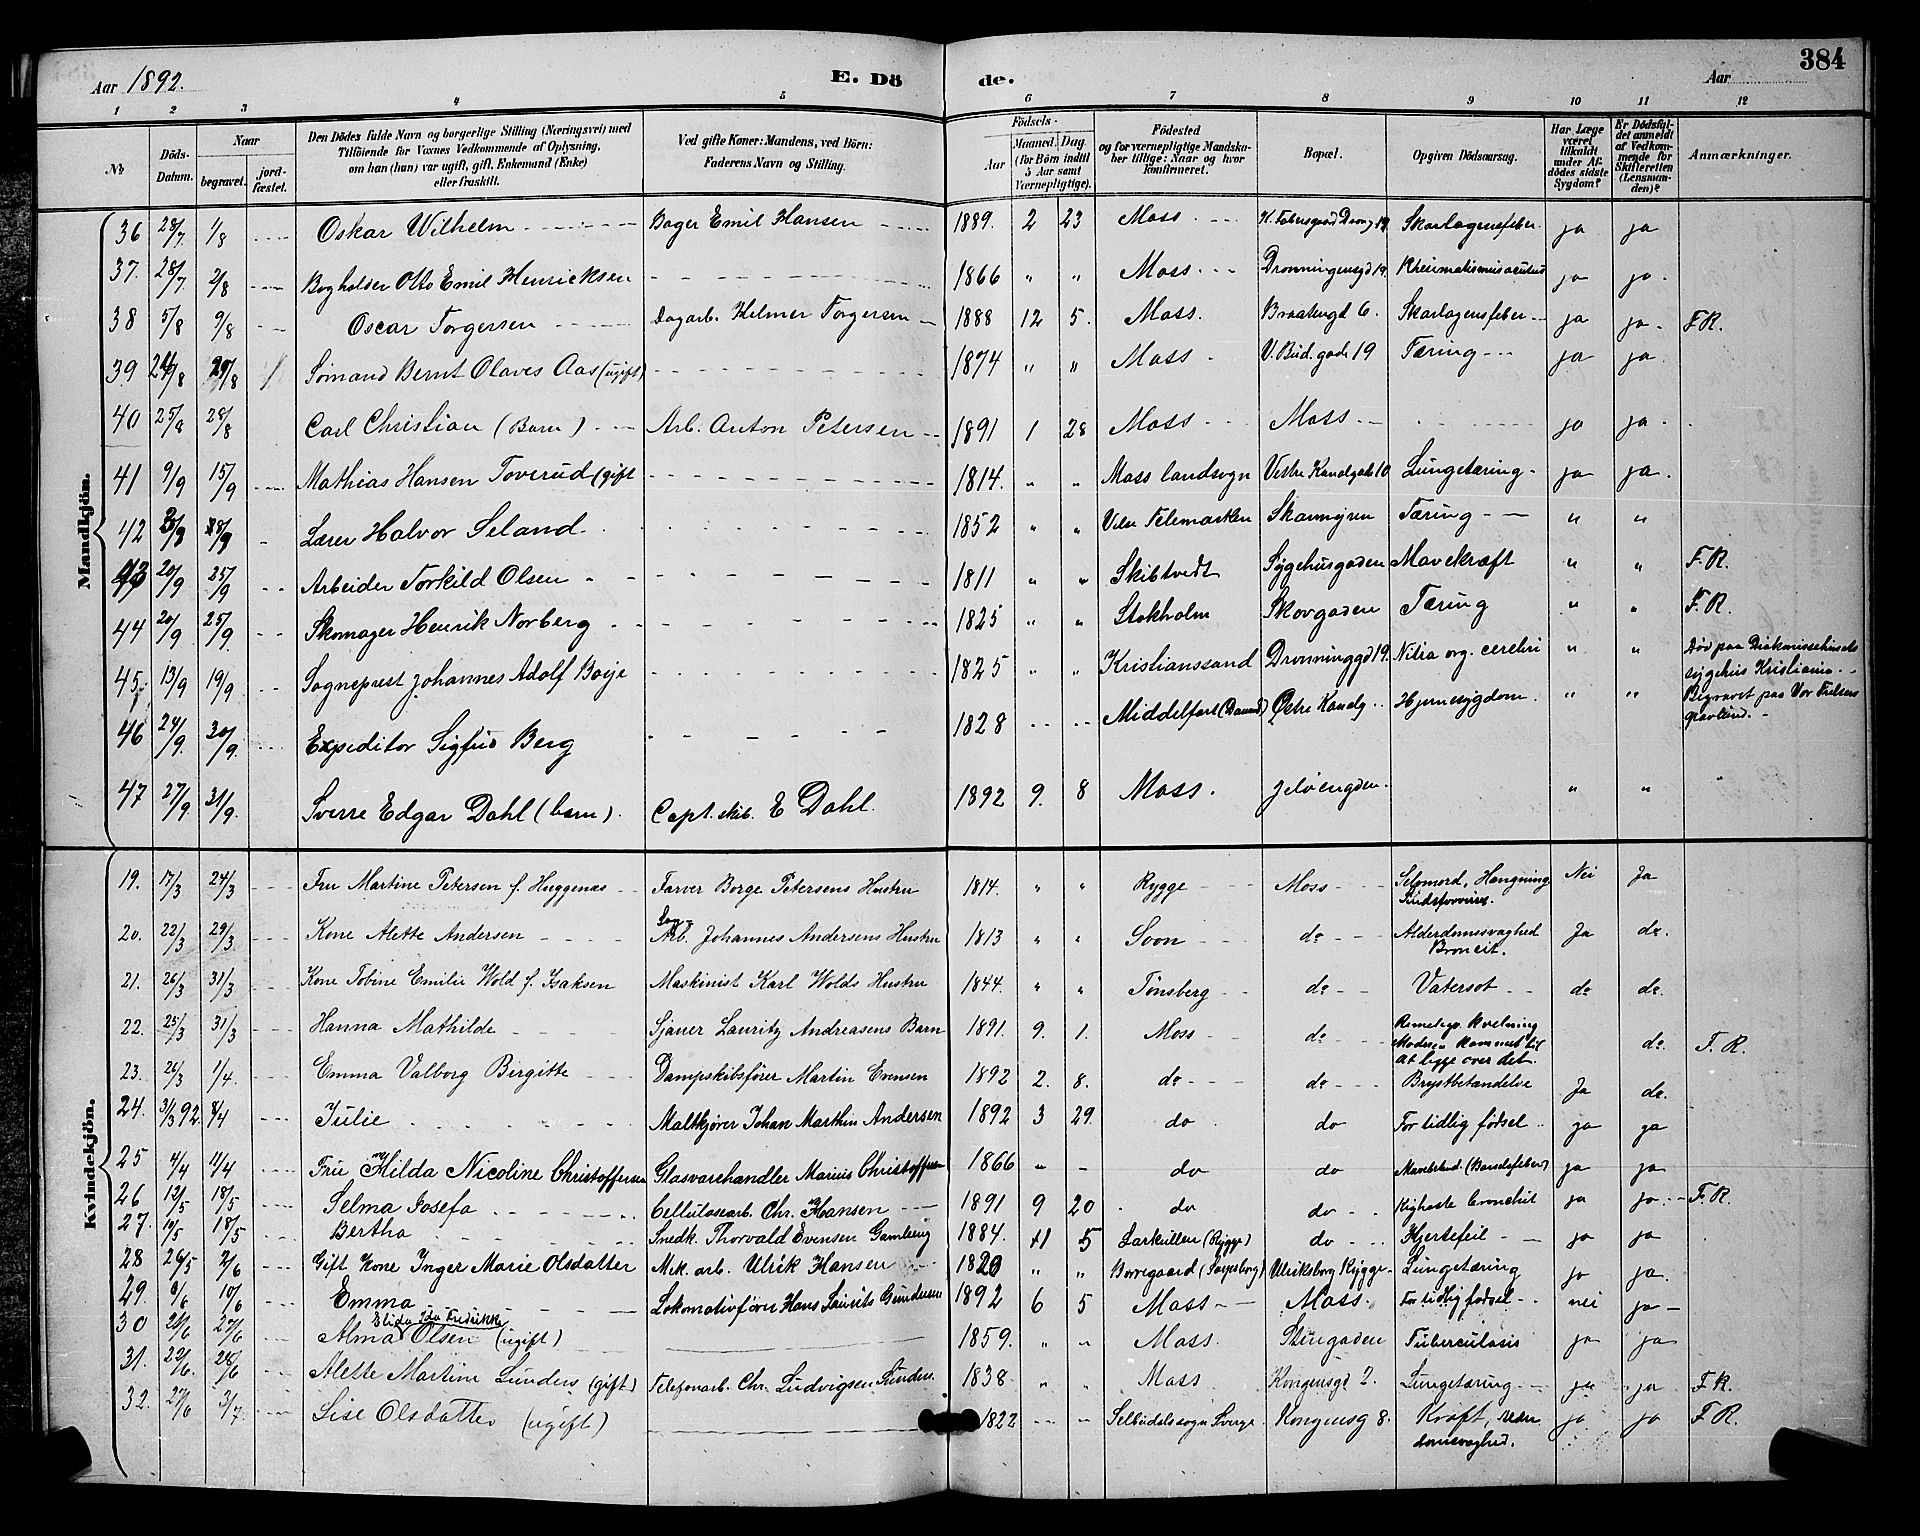 384
Aar 1892. E. Dö de. Aar
1 2 3 4 5 6 7 8 9 10 11 12
№ Döds-Datum. Naar begravet. jord-fæstet. Den Dödes fulde Navn og borgerlige Stilling (Næringsvei) med Tilföiende for Voxnes Vedkommende af Oplysning, om han (hun) var ugift, gift, Enkemand (Enke) eller fraskilt. Ved gifte Koner: Mandens, ved Börn: Faderens Navn og Stilling. Födsels- Aar Maaned. Dag (for Börn indtil 5 Aar samt Værnepligtige). Födested og for værnepligtige Mandskaber tillige: Naar og hvor konfirmeret. Bopæl. Opgiven Dödsaarsag. Har Læge været tilkaldt under Afdödes sidste Sygdom? Er Dödsfaldet anmeldt af Vedkommende for Skifteretten (Lensmanden)? Anmærkninger.
Mandkjön.
36 28/7 1/8 Oskar Wilhelm Bager Emil Hansen 1889. 2 23 Moss Skarlagensfeber ja ja
37. 28/7 2/8 Bogholder Otto Emil Henricksen 1866 " " Moss Dronningensgd 19. Rheumatismus acutus ja ja
38 5/8 9/8 Oscar Torgersen Dagarb. Helmer Torgersen 1888 12 5. Moss. Braatengd 6. Skarlagensfeber ja ja F.R.
39 24/8 29/8 Sömand Bernt Olaves Aas (ugift) 1874 " " Moss V. Bud. gade 19 Tæring ja ja
40 25/8 28/8 Carl Christian (Barn) Arb. Anton Petersen 1891 1 28 Moss Moss ja ja
41 9/9 15/9 Mathias Hansen Toverud (gift 1814. " " Moss landsogn Vestre Kanalgade 10 Lungetæring ja ja
42 Lærer Halvor Seland. 1852 " " Telemarken Tæring " "
43 20/9 25/9 Arbeider Torkild Olsen 1811 " " Skibtvedt Sygehusgaden Mavekræft " " F.R.
44 20/9 25/9 Skomager Henrik Norberg 1825 " " Stokholm Skovgaden Tæring " " F.R.
45. 13/9 19/9 Sogneprest Johannes Adolf Boije 1825 " " Kristianssand Dronninggd 19. org. cerebri " " Död paa Diakonissehusets sygehus Kristiania. Begravet paa Vor Frelsers gravlund.
46 24/9. 30/9. Expeditör Sigfred Berg 1828 Middelfart (Danm) Østre Kanalg Hjernesygdom " "
47 27/9. 31/9. Sverre Edgar Dahl (barn). Capt. skib. E Dahl. 1892 9. 8 Moss. " "
Kvindekjön.
19. 17/3 24/3 Fru Martine Petersen f. Huggenæs Farver Borge Petersens Hustru 1814. " " Rygge Moss Selvmord, Hængning Sindsforvirr. Nei Ja
20. 22/3 29/3 Kone Alette Andersen Dag- Arb. Johannes Andersens Hustru 1813 " " Soon do Alderdomsvaghed Broncit. Ja do.
21. 26/3 31/3 Kone Tobine Emilie Wold f. Isaksen Maskinist Karl Wolds Hustru 1844. " " Tönsberg do Vatersot do do.
22. 25/3 31/3 Hanna Mathilde Sjauer Lauritz Andreasens Barn 1891. 9. 1. Moss do kvelning Moderen kommet til at ligge over det. do. F.R.
23. 26/3 1/4. Emma Valborg Birgitte Dampskibsförer Martin Evensen 1892 2. 8. do do Brystbetændelse Ja do.
24. 31/3 92. 8/4 Julie Maltkjörer Johan Marthin Andersen 1892 3 29. do do For tidlig födsel ja ja
25 4/4 11/4 Fru Hilda Nicoline Christoffersen Glasvarehandler Marius Christoffersen 1866 " - do do (Barselfeber) ja ja
26 12/5 18/5 Selma Josefa Cellulosearb. Chr. Hansen 1891 9 20 do do Kighoste bronchit ja ja F.R.
27. 14/5 18/5 Bertha Snedk. Thorvald Evensen Gamberg 1884. 11 5 Larkullen (Rygge) do Hjertefeil ja ja
28 26/5 2/6 Gift Kone Inger Marie Olsdatter Mek. arb. Ulrik Hansen 1820 " " Borregaard (Sarpsborg) Ulriksborg Rygge Lungetæring ja ja.
29. 6/6 10/6 Emma Lokomotivförer Hans Laurits Gundersen 1892 6 5 Moss Moss. For tidlig födsel nei ja
30 21/6 27/6 Alma Elida Ida Fredrikke Olsen (ugift) 1859. " " Moss. Stengaden Tuberculosis ja ja
31. 22/6. 28/6 Alette Martine Lunders (gift) Telefonarb. Chr. Ludvigsen Lunders. 1838 " " Moss Kongensgd 2. Lungetæring ja ja F.R.
32. 27/6 3/7 Lise Olsdatter (ugift) 1822 Kongensg 8. Kræft, Alderdomsvaghed. ja ja F.R.